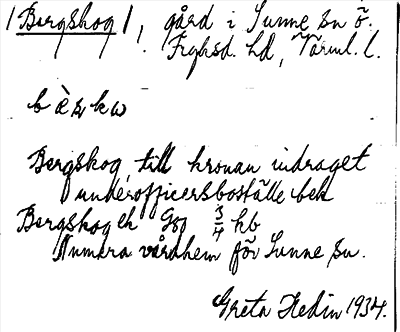 /Bergskog/, gård i Sunne sn ö.
Fryksd. hd, Värml. l.
bæ̀ʂkω
Bergskog, till kronan indraget
underofficersboställe beh
Bergskog eh Goj 3/4 hb
Numera vårdhem för Sunne sn.
Greta Hedin 1934.